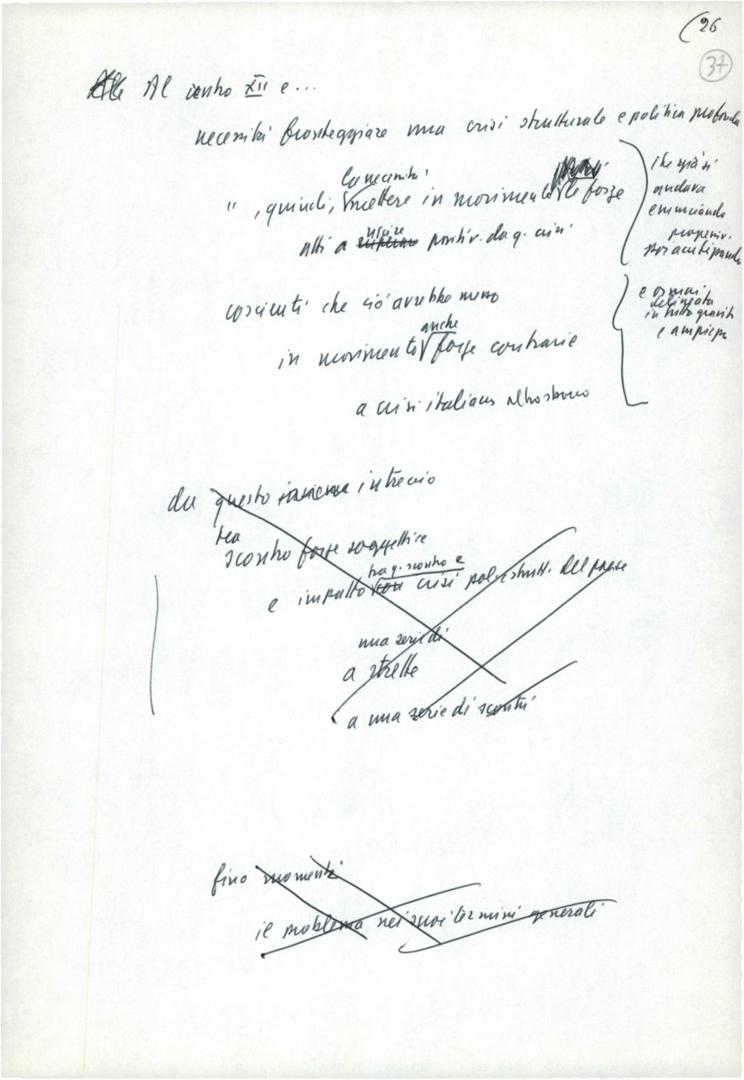 (26
37
Al centro XII e...
necessità fronteggiare una crisi strutturale e politica profonda
la necessità
", quindi, mettere in movimento le forze
atti a uscire positiv. da q. crisi
che già si
andava
enunciando
coscienti che ciò avrebbe messo
anche
in movimento forze contrarie
a crisi italiana
e ormai
delineata
in tutta gravità
e ampiezza
da questo insieme intreccio
tra
scontro forze soggettive
tra q. scontro e
e impatto con crisi pol. e strutt. del paese
una serie di
a strette
a una serie di scontri
fino momenti
il problema nei suoi termini generali